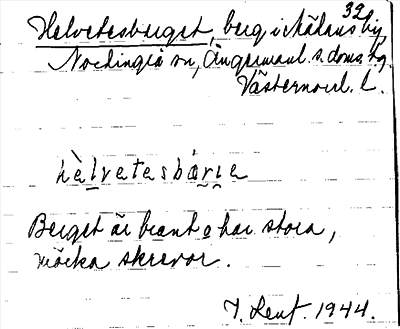 32
Helvetesberget, berg i Nälans by,
Nordingrå sn, Ångermanl. s. doms. tg
Västernorrl. l.
hèlvetesbárıe
Berget är brant o har stora,
mörka skrevor.
1944.